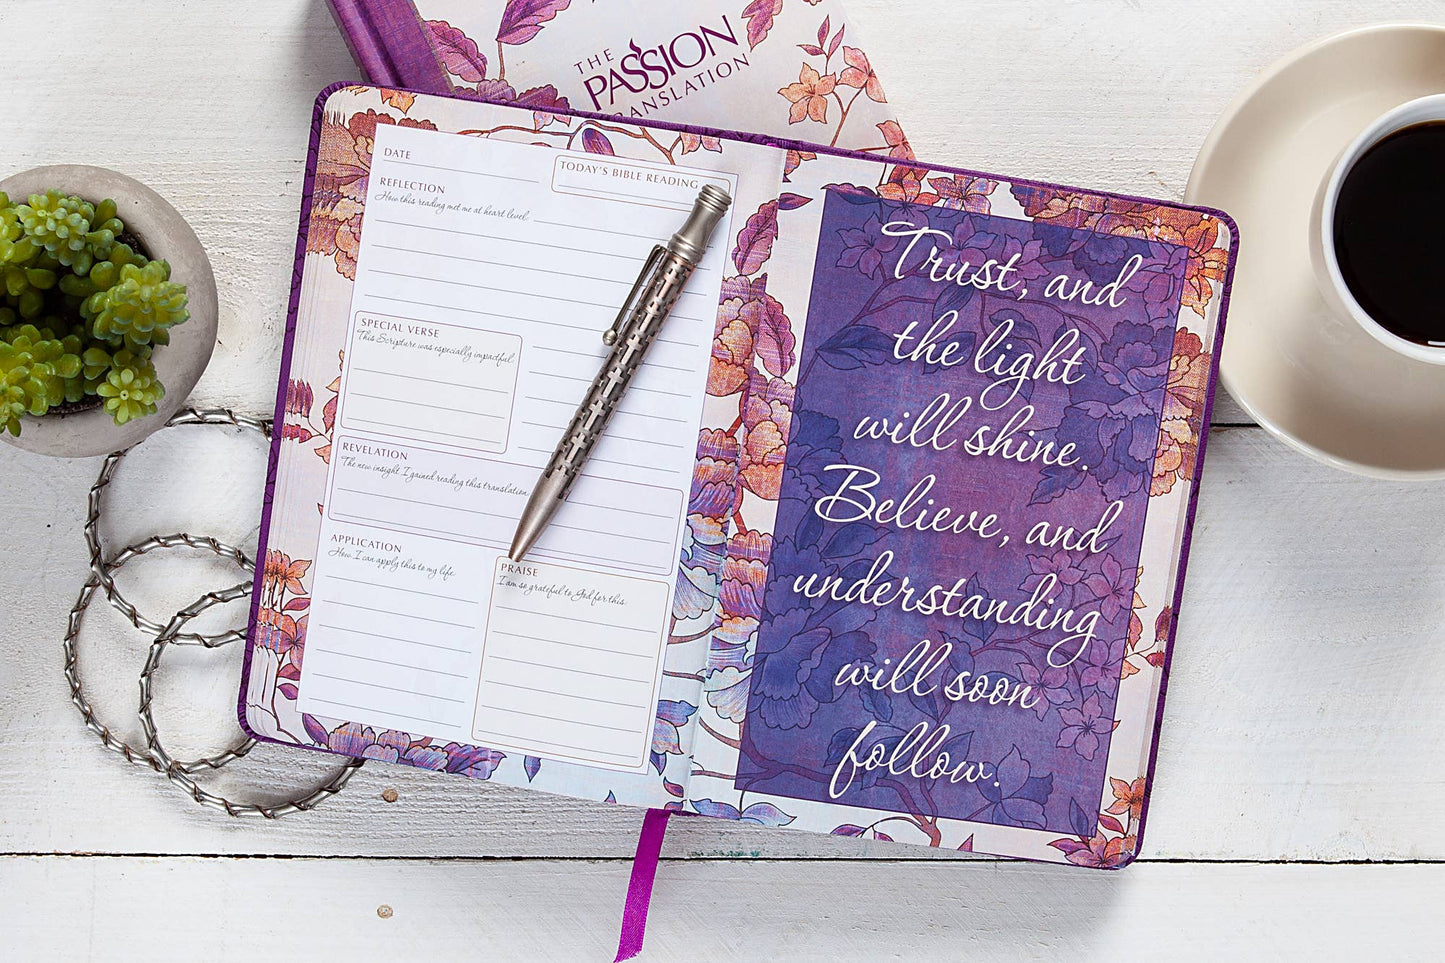 THE
PASSION
TRANSLATION
DATE
TODAY'S BIBLE READING
REFLECTION
How this reading met me at heart level.
SPECIAL VERSE
This Scripture was especially impactful.
REVELATION
The new insight I gained reading this translation
APPLICATION
How I can apply this to my life.
PRAISE
I am so grateful to God for this.
Trust, and
the light
will shine.
Believe, and
understanding
will soon
follow.